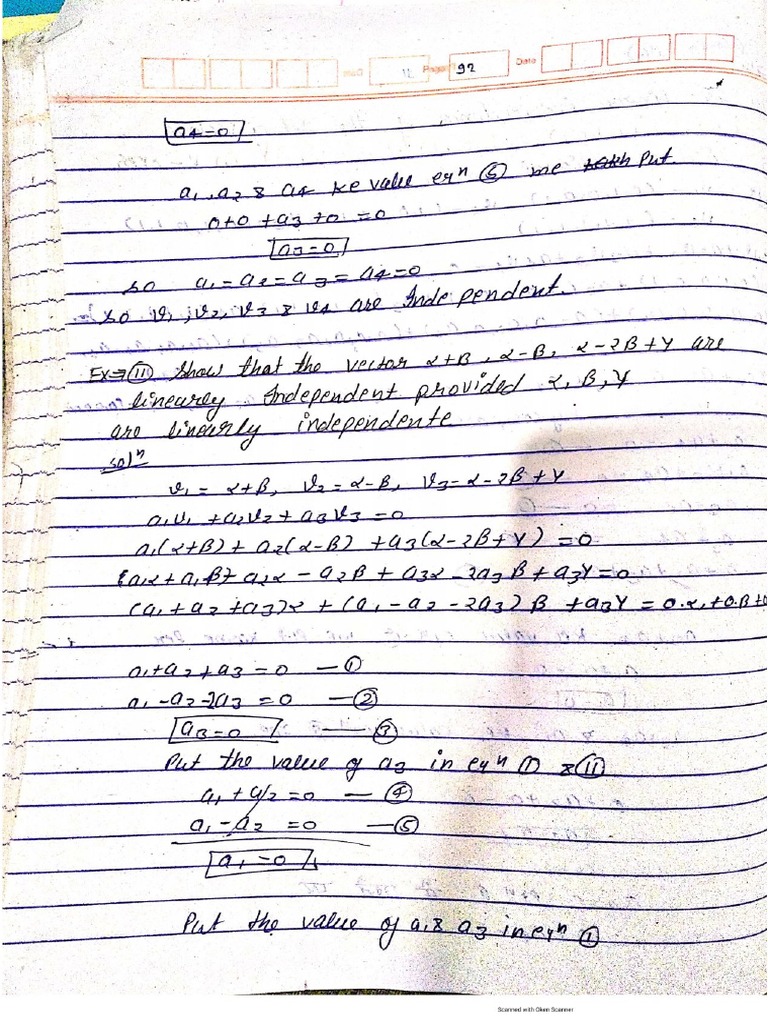 Page 92 Date
a4=0
a1, a2 & a4 ke value eqn 5 me Put.
0+0+a3+0=0
a3=0
so a1=a2=a3=a4=0
so v1, v2, v3 & v4 are Independent.
Ex⇒ 11 Show that the vector α+β, α-β, α-2β+γ are
linearly Independent provided α, β, γ
are linearly independente
soln
v1 = α+β, v2=α-β, v3-α-2β+γ
a1v1+a2v2+a3v3=0
a1(α+β)+a2(α-β)+a3(α-2β+γ)=0
(a1α+a1β+a2α-a2β+a3α-2a3β+a3γ=0
(a1+a2+a3)α+(a1-a2-2a3)β+a3γ=0.α+0.β+0
a1+a2+a3=0 — 1
a1-a2-2a3=0 — 2
a3=0 — 3
Put the value of a3 in eqn 1 & 11
a1+a2=0 — 4
a1-a2=0 — 5
a1=0
Put the value of a1 & a3 in eqn 1
Scanned with Oken Scanner